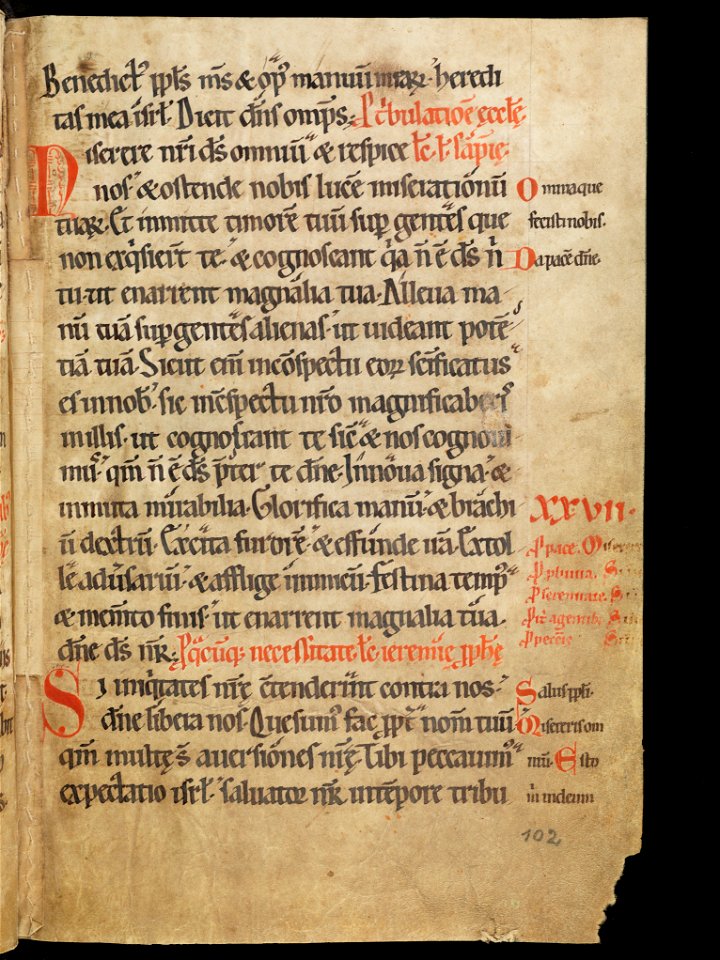 Benedict᷒ ppls m̄s & op᷒ manuū mearꝝ heredi
tas mea isrł. Dicit dn̄s omp̄s. P t͛bulatiōe eccłę.
Miserere nr̄i dś omniū & respice łc ł sapię.
nos & ostende nobis lucē miserationū
tuarꝝ. Et inmitte timorē tuū sup gentēs que
non exq̇sier̄t te. & cognoscant qa n̄ ē dś n̄
tu. ut enarrent magnalia tua. Alleua ma
nū tuā sup gentes alienas. ut uideant potē
tiā tuā. Sicut eni᷒ incōspectu eorꝝ scīficatus
es innob̄. sic incspectu nr̄o magnificaberis
inillis. ut cognoscant te sic̄ & nos cognoui
mus᷒ qm̄ n̄ ē dś pter te dn̄e. Innoua signa. &
inmuta mirabilia. Glorifica manū. & brachi
ū dextrū. Excita furorē. & effunde irā. Extol
le aduersariū. & afflige inimicū. festina temp᷒
& mem̄to finis. ut enarrent magnalia tua.
dn̄e dś nr̄. P qacūq; necessitate. łc ieremię pphę
Si iniq̇tates nr̄ę ctenderint contra nos.
dn̄e libera nos. Quesum᷒ fac ppt̄ nom̄ tuū
qm̄ multę s̄ auersiones nr̄ę. Tibi peccauim᷒
expectatio isrł. saluator nr̄ intēpore tribu
Omnia que
fecisti nobis.
Da pacē dn̄e.
XXVII.
P pace.
P pluuia.
P serenitate.
P it̄ agentib;
Salus ppli.
Misereris om
niū. Esto
102